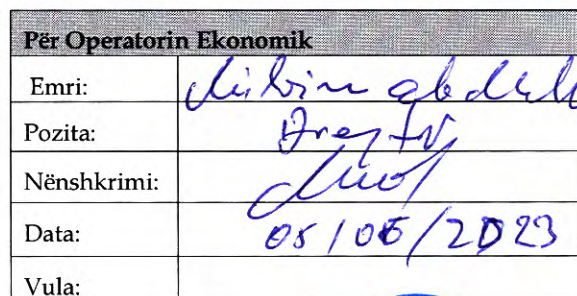 Për Operatorin Ekonomik
Emri:
Pozita: Drejtor
Nënshkrimi:
Data: 05/06/2023
Vula: